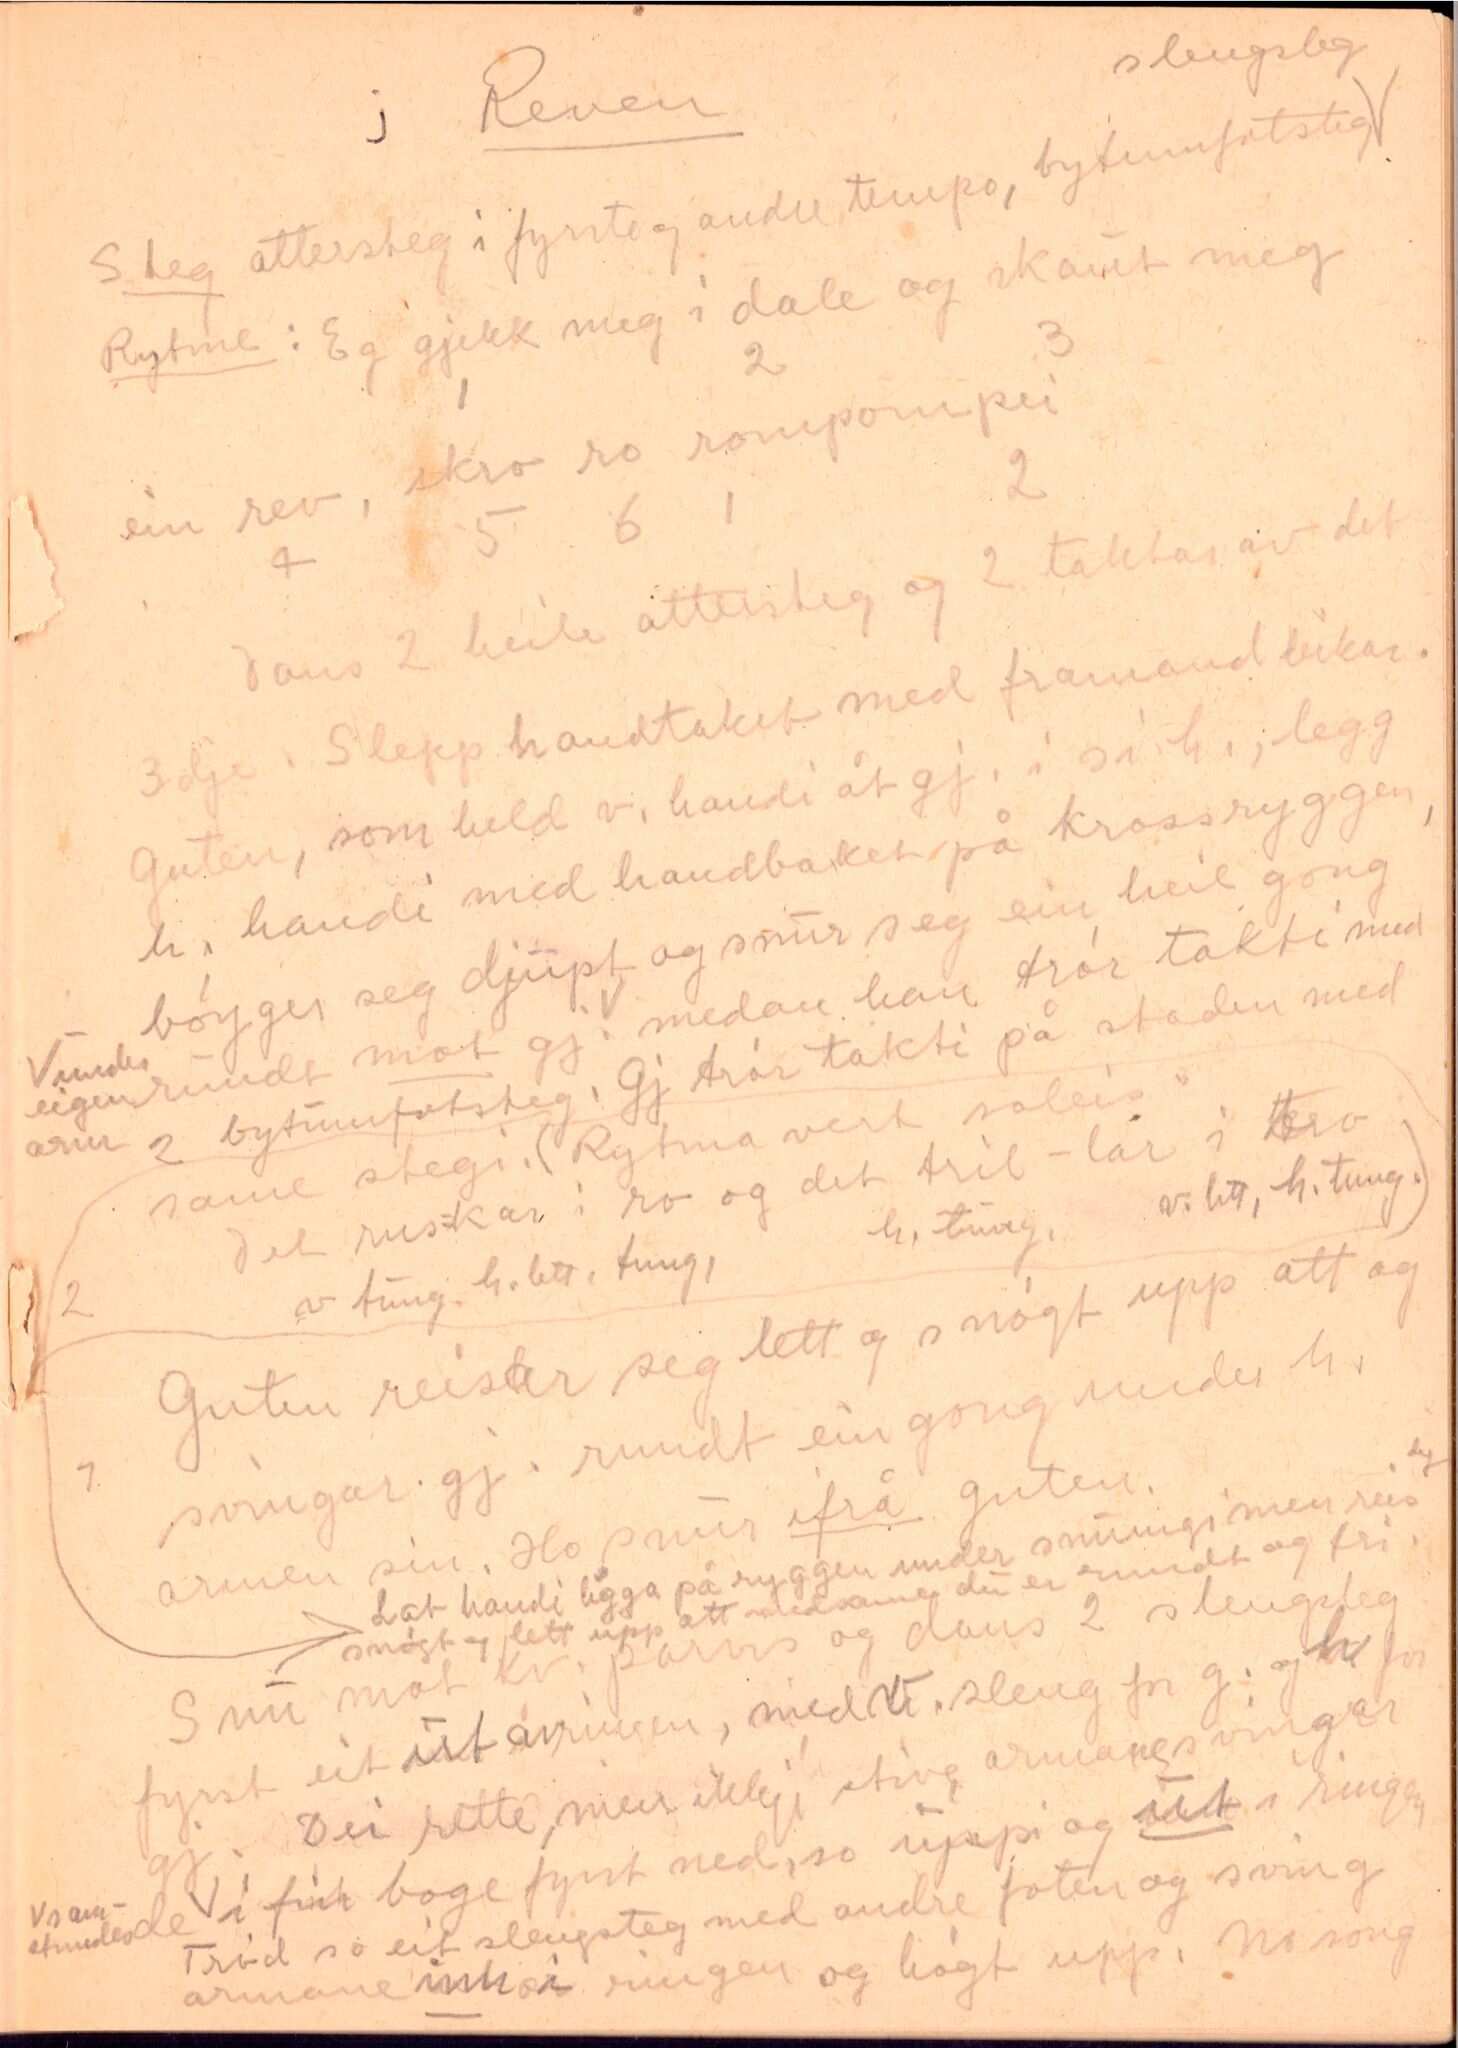 j Reven
slengsteg
Steg attersteg i fyrste og andre tempo, bytumfotsteg √
Rytme: Eg gjekk meg i dale og skaut meg
1 2 3
ein rev, skro ro rompompei
4 5 6 1 2
Dans 2 heile attersteg og 2 taktar av det
3dje. Slepp handtaket med framand leikar.
Guten, som held v. handi åt gj. i si h., legg
h. handi med handbaket på krossryggen,
bøyger seg djupt og snur seg ein heil gong
rundt mot gj. √ medan han trør takti med
√ under eigen arm
2 bytumfotsteg. Gj trør takti på staden med
same stegi. (Rytma vert soleis"
Det ruskar i ro og det tril-lar i tro
v tung. h. lett. tung, h. tung. v. lett, h. tung.)
2 Guten reiser seg lett og snøgt upp att og
1 svingar gj. rundt ein gong under h.
armen sin. Ho snur ifrå guten.
Lat handi ligga på ryggen under snuingi men reis deg
snøgt og lett upp att medsame du er rundt og fri.
Snu mot kv. parvis og dans 2 slengsteg
fyrst eit ut av ringen, med v. sleng for g. og h for
gj. Dei rette, men ikkje stive armane svingar
de √ i fin boge fyrst ned, so uppi og ut i ringen
√ samstundes
Trød so eit slengsteg med andre foten og sving
armane inn i ringen og høgt upp. No song